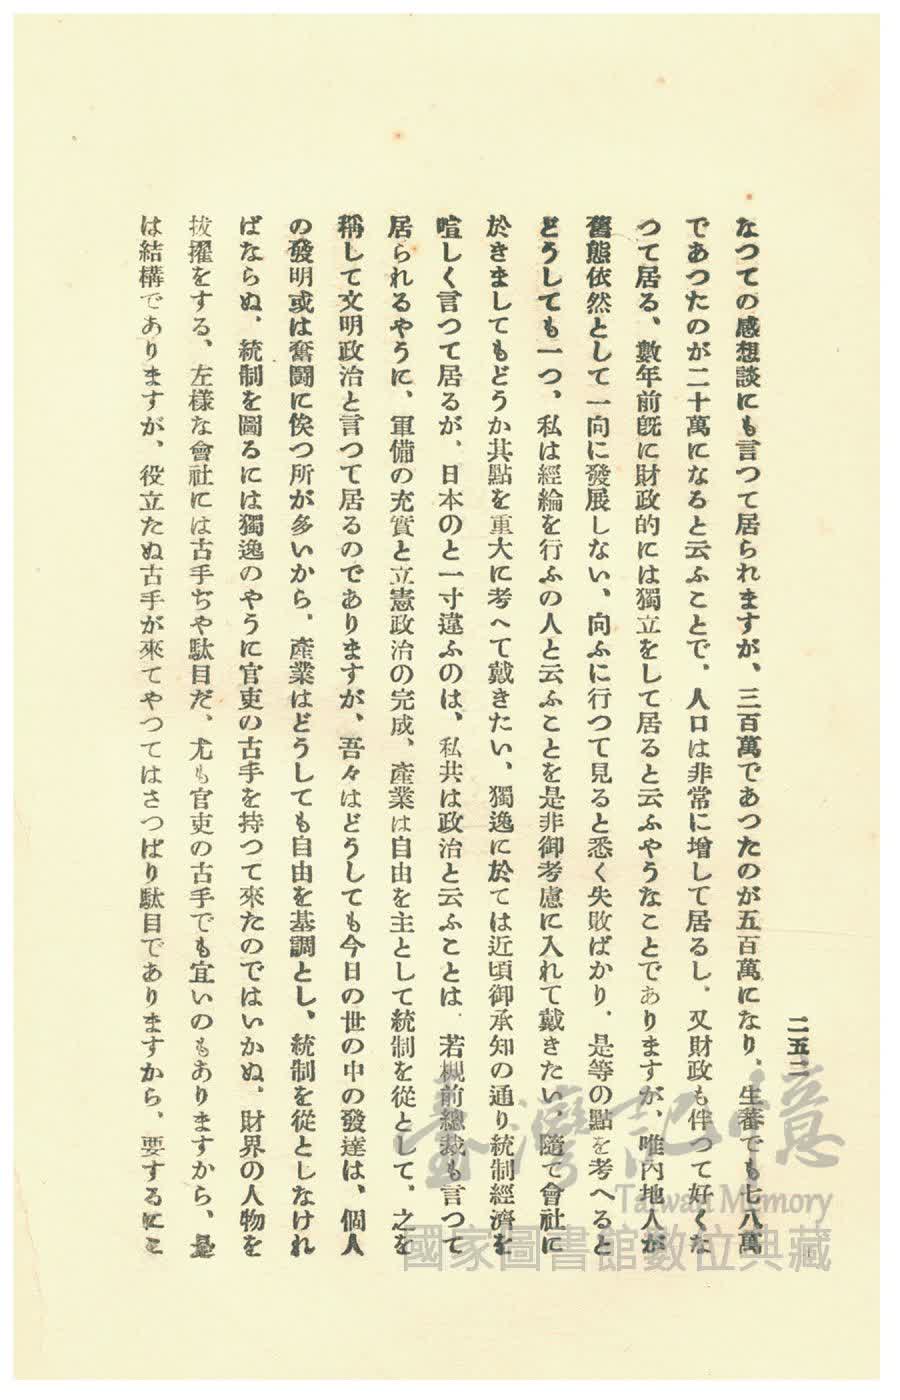 二五二
なつての感想談にも言つて居られますが、三百萬であつたのが五百萬になり、生蕃でも七八萬
であつたのが二十萬になると云ふことで、人口は非常に增して居るし、又財政も伴つて好くな
つて居る、數年前既に財政的には獨立をして居ると云ふやうなことでありますが、唯內地人が
舊態依然として一向に發展しない、向ふに行つて見ると悉く失敗ばかり、是等の點を考へると
どうしても一つ、私は經綸を行ふの人と云ふことを是非御考慮に入れて戴きたい、隨て會社に
於きましてもどうか其點を重大に考へて戴きたい、獨逸に於ては近頃御承知の通り統制經濟を
喧しく言つて居るが、日本のと一寸違ふのは、私共は政治と云ふことは、若槻前總裁も言つて
居られるやうに、軍備の充實と立憲政治の完成、產業は自由を主として統制を從として、之を
稱して文明政治と言つて居るのでありますが、吾々はどうしても今日の世の中の發達は、個人
の發明或は奮鬪に俟つ所が多いから、產業はどうしても自由を基調とし、統制を從としなけれ
ばならぬ、統制を圖るには獨逸のやうに官吏の古手を持つて來たのではいかぬ、財界の人物を
拔擢をする、左樣な會社には古手ぢや駄目だ、尤も官吏の古手でも宜いのもありますから、是
は結構でありますが、役立たぬ古手が來てやつてはさつぱり駄目でありますから、要するにこ
臺灣記憶
Taiwan Memory
國家圖書館數位典藏